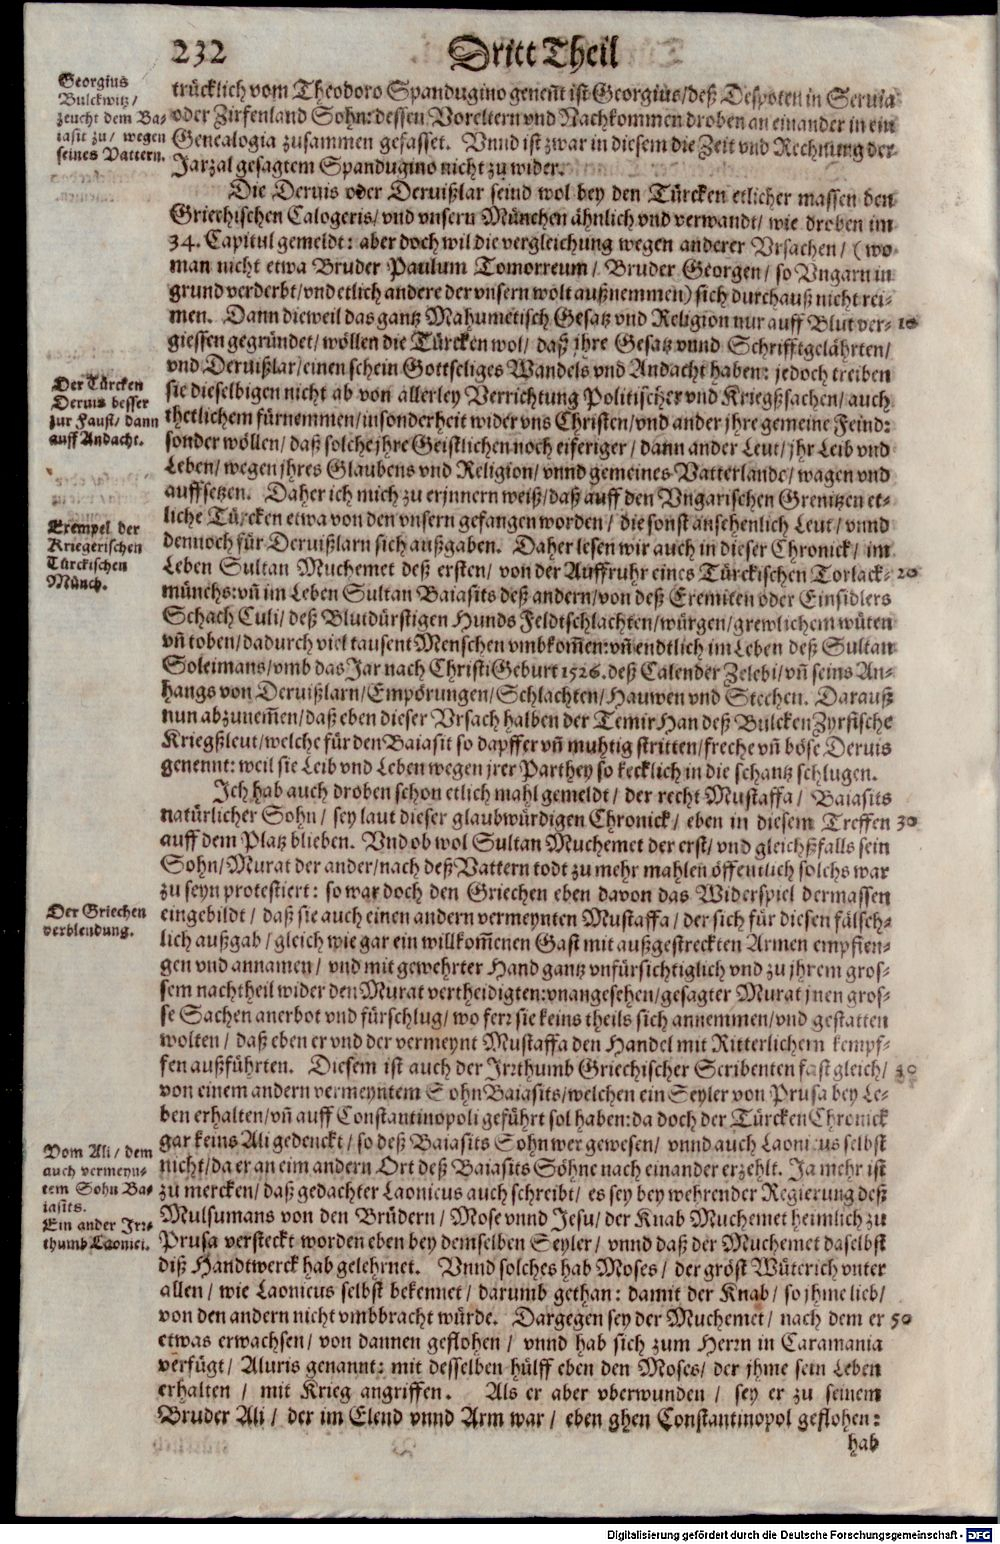 232
Dritt Theil
Georgius
Bulckwitz/
zeucht dem Ba-
iasit zu/ wegen
seines Vattern.
trücklich vom Theodoro Spandugino geneñt ist Georgius/deß Despoten in Seruia
oder Zirfenland Sohn: dessen Voreltern vnd Nachkommen droben an einander in ein
Genealogia zusammen gefasset. Vnnd ist zwar in diesem die Zeit vnd Rechnung der
Jarzal gesagtem Spandugino nicht zu wider.
Die Deruis oder Deruißlar seind wol bey den Türcken etlicher massen den
Griechischen Calogeris/ vnd vnsern München ähnlich vnd verwandt/ wie droben im
34. Capitul gemeldt: aber doch wil die vergleichung wegen anderer Vrsachen/ (wo
man nicht etwa Bruder Paulum Tomorreum/ Bruder Georgen/ so Vngarn in
grund verderbt/vnd etlich andere der vnsern wolt außnemmen) sich durchauß nicht rei-
men. Dann dieweil das gantz Mahumetisch Gesatz vnd Religion nur auff Blut ver- 10
giessen gegründet/ wöllen die Türcken wol/ daß jhre Gesatz vnnd Schrifftgelährten/
vnd Deruißlar/einen schein Gottseliges Wandels vnd Andacht haben: jedoch treiben
Der Türcken
Deruis besser
zur Faust/ dann
auff Andacht.
sie dieselbigen nicht ab von allerley Verrichtung Politischer vnd Kriegßsachen/ auch
thetlichem fürnemmen/insonderheit wider vns Christen/vnd ander jhre gemeine Feind:
sonder wöllen/ daß solche jhre Geistlichen noch eiferiger/ dann ander Leut/ jhr Leib vnd
Leben/ wegen jhres Glaubens vnd Religion/ vnnd gemeines Vatterlands/ wagen vnd
auffsetzen. Daher ich mich zu erjnnern weiß/daß auff den Vngarischen Grenitzen et-
liche Türcken etwa von den vnsern gefangen worden/ die sonst ansehenlich Leut/ vnnd
Exempel der
Kriegerischen
Türckischen
Münch.
dennoch für Deruißlarn sich außgaben. Daher lesen wir auch in dieser Chronick/ im
Leben Sultan Muchemet deß ersten/ von der Auffruhr eines Türckischen Torlack- 20
münchs: vñ im Leben Sultan Baiasits deß andern/von deß Eremiten oder Einsidlers
Schach Culi/ deß Blutdürstigen Hunds Feldtschlachten/würgen/grewlichem wüten
vñ toben/dadurch viel tausent Menschen vmbkom̃en: vñ endtlich im Leben deß Sultan
Soleimans/vmb das Jar nach Christi Geburt 1526. deß Calender Zelebi/ vñ seins An-
hangs von Deruißlarn/Empörungen/Schlachten/Hauwen vnd Stechen. Darauß
nun abzunem̃en/daß eben dieser Vrsach halben der Temir Han deß Bulcken Zyrfische
Kriegßleut/welche für den Baiasit so dapffer vñ muhtig stritten/freche vñ böse Deruis
genennt: weil sie Leib vnd Leben wegen jrer Parthey so kecklich in die schantz schlugen.
Ich hab auch droben schon etlich mahl gemeldt/ der recht Mustaffa/ Baiasits
natürlicher Sohn/ sey laut dieser glaubwürdigen Chronick/ eben in diesem Treffen 30
auff dem Platz blieben. Vnd ob wol Sultan Muchemet der erst/ vnd gleichßfalls sein
Sohn/ Murat der ander/nach deß Vattern todt zu mehr mahlen öffentlich solchs war
zu seyn protestiert: so war doch den Griechen eben davon das Widerspiel dermassen
Der Griechen
verblendung.
eingebildt/ daß sie auch einen andern vermeynten Mustaffa/ der sich für diesen fälsch-
lich außgab/ gleich wie gar ein willkom̃enen Gast mit außgestreckten Armen empfien-
gen vnd annamen/ vnd mit gewehrter Hand gantz vnfürsichtiglich vnd zu jhrem gros-
sem nachtheil wider den Murat vertheidigten: vnangesehen/gesagter Murat jnen gros-
se Sachen anerbot vnd fürschlug/ wo ferr sie keins theils sich annemmen/vnd gestatten
wolten/ daß eben er vnd der vermeynt Mustaffa den Handel mit Ritterlichem kempf-
fen außführten. Diesem ist auch der Irrthumb Griechischer Scribenten fast gleich/ 40
von einem andern vermeyntem Sohn Baiasits/welchen ein Seyler von Prusa bey Le-
ben erhalten/vñ auff Constantinopoli geführt sol haben: da doch der Türcken Chronick
gar keins Ali gedenckt/ so deß Baiasits Sohn wer gewesen/ vnnd auch Laonicus selbst
Vom Ali/ dem
auch vermeyn-
tem Sohn Ba-
iasits.
Ein ander Irr-
thumb Laonici.
nicht/da er an eim andern Ort deß Baiasits Söhne nach einander erzehlt. Ja mehr ist
zu mercken/ daß gedachter Laonicus auch schreibt/ es sey bey wehrender Regierung deß
Mulsumans von den Brüdern/ Mose vnnd Jesu/ der Knab Muchemet heimlich zu
Prusa versteckt worden eben bey demselben Seyler/ vnnd daß der Muchemet daselbst
diß Handtwerck hab gelehrnet. Vnnd solches hab Moses/ der gröst Wüterich vnter
allen/ wie Laonicus selbst bekennet/ darumb gethan: damit der Knab/ so jhme lieb/
von den andern nicht vmbbracht würde. Dargegen sey der Muchemet/ nach dem er 50
etwas erwachsen/ von dannen geflohen/ vnnd hab sich zum Herrn in Caramania
verfügt/ Aluris genannt: mit desselben hülff eben den Moses/ der jhme sein Leben
erhalten/ mit Krieg angriffen. Als er aber vberwunden/ sey er zu seinem
Bruder Ali/ der im Elend vnnd Arm war/ eben ghen Constantinopol geflohen:
hab
Digitalisierung gefördert durch die Deutsche Forschungsgemeinschaft - DFG